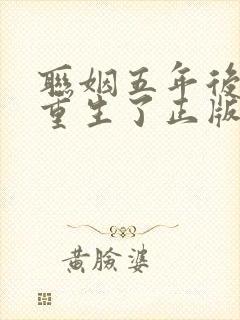 聯姻五年後
重生了正版
黃臉婆